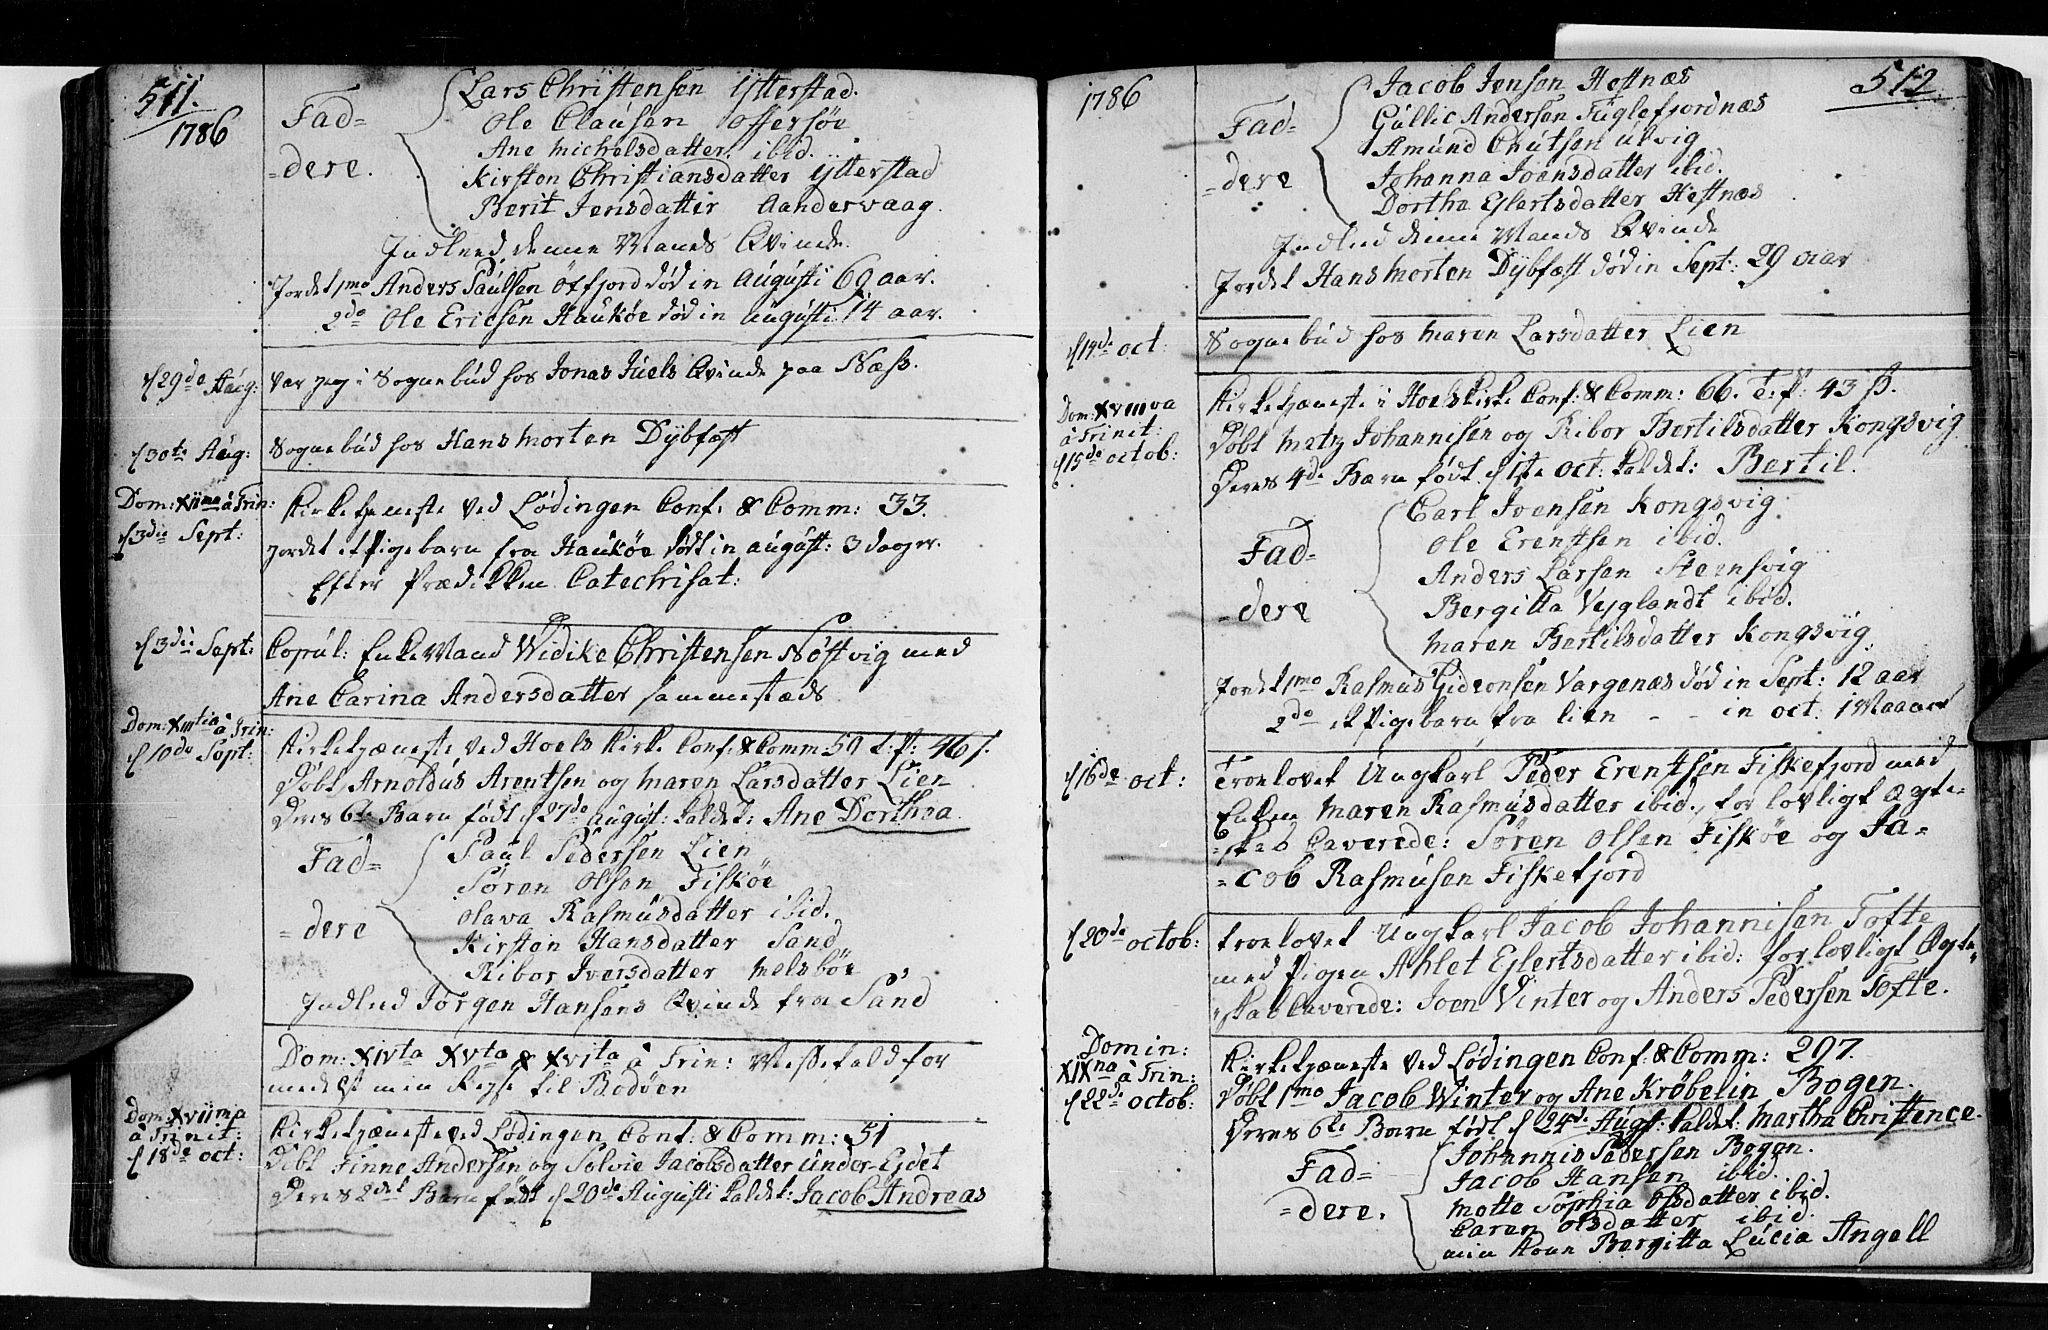 511.
1786
Fad=
=dere.
Lars Christensen Ytterstad.
Ole Clausen Offersøe
Ane Michelsdatter ibid.
Kirsten Christiansdatter Ytterstad
Berit Jensdatter Aandervaag.
Indleed denne Mands Qvinde.
Jordet 1mo Anders Paulsen Øxfjord død in Augusti 69 aar.
2do Ole Ericsen Haukøe død in Augusti 14 aar.
d 29de Aug:
var jeg i Sognebud hos Jonas Juels Qvinde paa Næss.
d 30te Aug:
Sognebud hos Hans Morten Dybfæst
Dom: XIIma à Trin:
d 3die Sept:
Kirketjeneste ved Lødingen Conf: & Comm: 33.
Jordet et Pigebarn fra Haukøe født in august: 3 dager.
Efter Prædikken Catechisat:
d 3die Sept:
Copul: Enkemand Widike Christensen Nøstvig med
Ane Carina Andersdatter sammestæds
Dom: XIIItia à Trin:
d 10de Sept:
Kirketjæneste ved Hoels Kirke Conf: & Comm 59 t: p: 46 s.
Døbt Arnoldus Arentsen og Maren Larsdatter Lien
Deres 6te Barn født d 27de august: kaldet: Ane Dorthea
Fad=
=dere
Paul Pedersen Lien
Søren Olsen Fiskøe
Olava Rasmusdatter ibid.
Kirsten Hansdatter Sand
Ribor Iversdatter Melsbøe
Indled Jørgen Hansens Qvinde fra Sand
Dom: XIVta XVta & XVIta à Trin: Messefald for
medelst min Reyse til Bodøen
Dom: XVIIma
à Trinit:
d 18de oct:
Kirketjæneste ved Lødingen Conf: & Comm: 51
Døbt Finne Andersen og Solvie Jacobsdatter under-Ejdet
Deres 2det Barn født d 20de Augusti kaldet: Jacob Andreas
1786
512.
Fad=
=dere
Jacob Jensen Hestnæs
Gullic Andersen Fuglefjordnæs
Amund Chutsen Ulvig
Johanna Joensdatter ibid.
Dorthe Ejlertsdatter Hestnæs
Indled denne Mands Qvinde
Jordet Hans Morten Dybfæst død in Sept: 29 aar
d 14de oct:
Sognebud hos Maren Larsdatter Lien
Dom: XVIIIva
à Trinit:
d 15de octob:
Kirketjæneste i Hoels Kirke Conf: & Comm: 66. T: p: 43 s.
Døbt Matz Johannisen og Ribor Bertilsdatter Kongsvig
Deres 4de Barn født d 1te oct: kaldet: Bertil.
Fad=
=dere
Carl Joensen Kongsvig.
Ole Erentsen ibid.
Anders Larsen Steensvig
Bergitta Vejglandt ibid.
Maren Bertilsdatter Kongsvig.
Jordet 1mo Rasmus Gideonsen Vargenæs død in Sept: 12 aar
2do et Pigebarn fra Lien - - in oct: 1 Maaned
d 16de oct:
Troelovet Ungkarl Peder Erentsen Fiskefjord med
Enken Maren Rasmusdatter ibid., for lovligt Ægte=
=skab Caverede: Søren Olsen Fiskøe og Ja=
=cob Rasmusen Fiskefjord
d 20de octob:
troelovet Ungkarl Jacob Johannisen Tofte
med Pigen Ahlet Ejlertsdatter ibid: for lovligt Ægte=
=skab Caverede: Joen Vinter og Anders Pedersen Tofte.
Domin:
XIXna à Trin:
d 22de octob:
Kirketjæneste ved Lødingen Conf: & Comm: 207.
Døbt 1mo Jacob Winter og Ane Krøbelin Bogen.
Deres 6te Barn født d 24de Aug: kaldet: Martha Christence.
Fad=
=dere.
Johannis Pedersen Bogen.
Jacob Hansen ibid.
Mette Sophia Olsdatter ibid.
Caren Olsdatter ibid.
min Kone Bergitta Lucia Angell